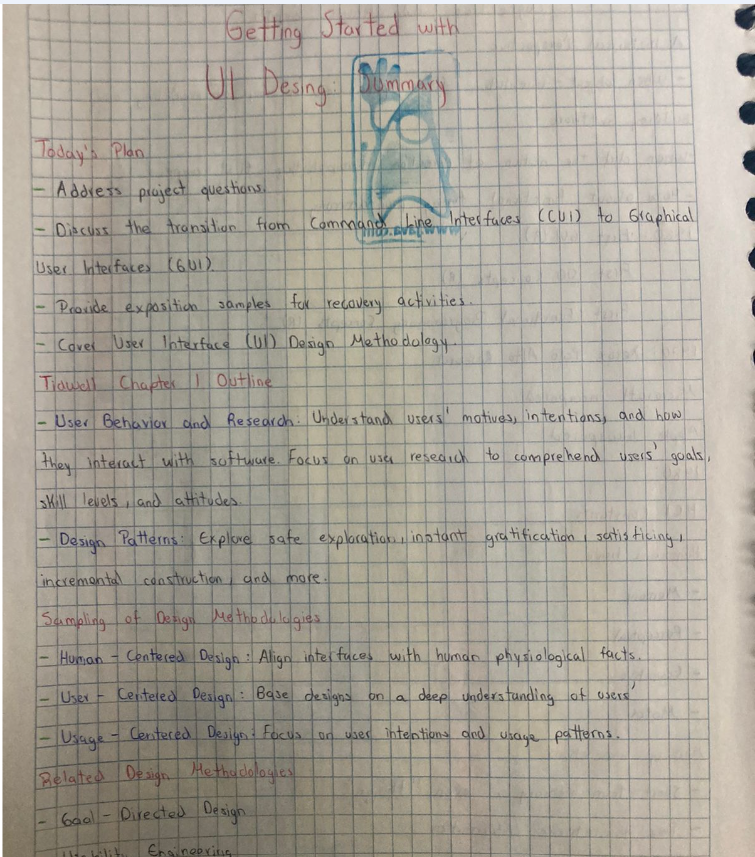 Getting Started with
UI Desing: Summary
Today's Plan
- Address project questions.
- Discuss the transition from Command Line Interfaces (CUI) to Graphical
User Interfaces (GUI).
- Provide exposition samples for recovery activities.
- Cover User Interface (UI) Design Methodology.
Tidwell Chapter 1 Outline
- User Behavior and Research: Understand users' motives, intentions, and how
they interact with software. Focus on user research to comprehend users' goals,
skill levels, and attitudes.
- Design Patterns: Explore safe exploration, instant gratification, satisficing,
incremental construction, and more.
Sampling of Design Methodologies
- Human - Centered Design: Align interfaces with human physiological facts.
- User - Centered Design: Base designs on a deep understanding of users'
- Usage - Centered Design: Focus on user intentions and usage patterns.
Related Design Methodologies
- Goal - Directed Design
Engineering